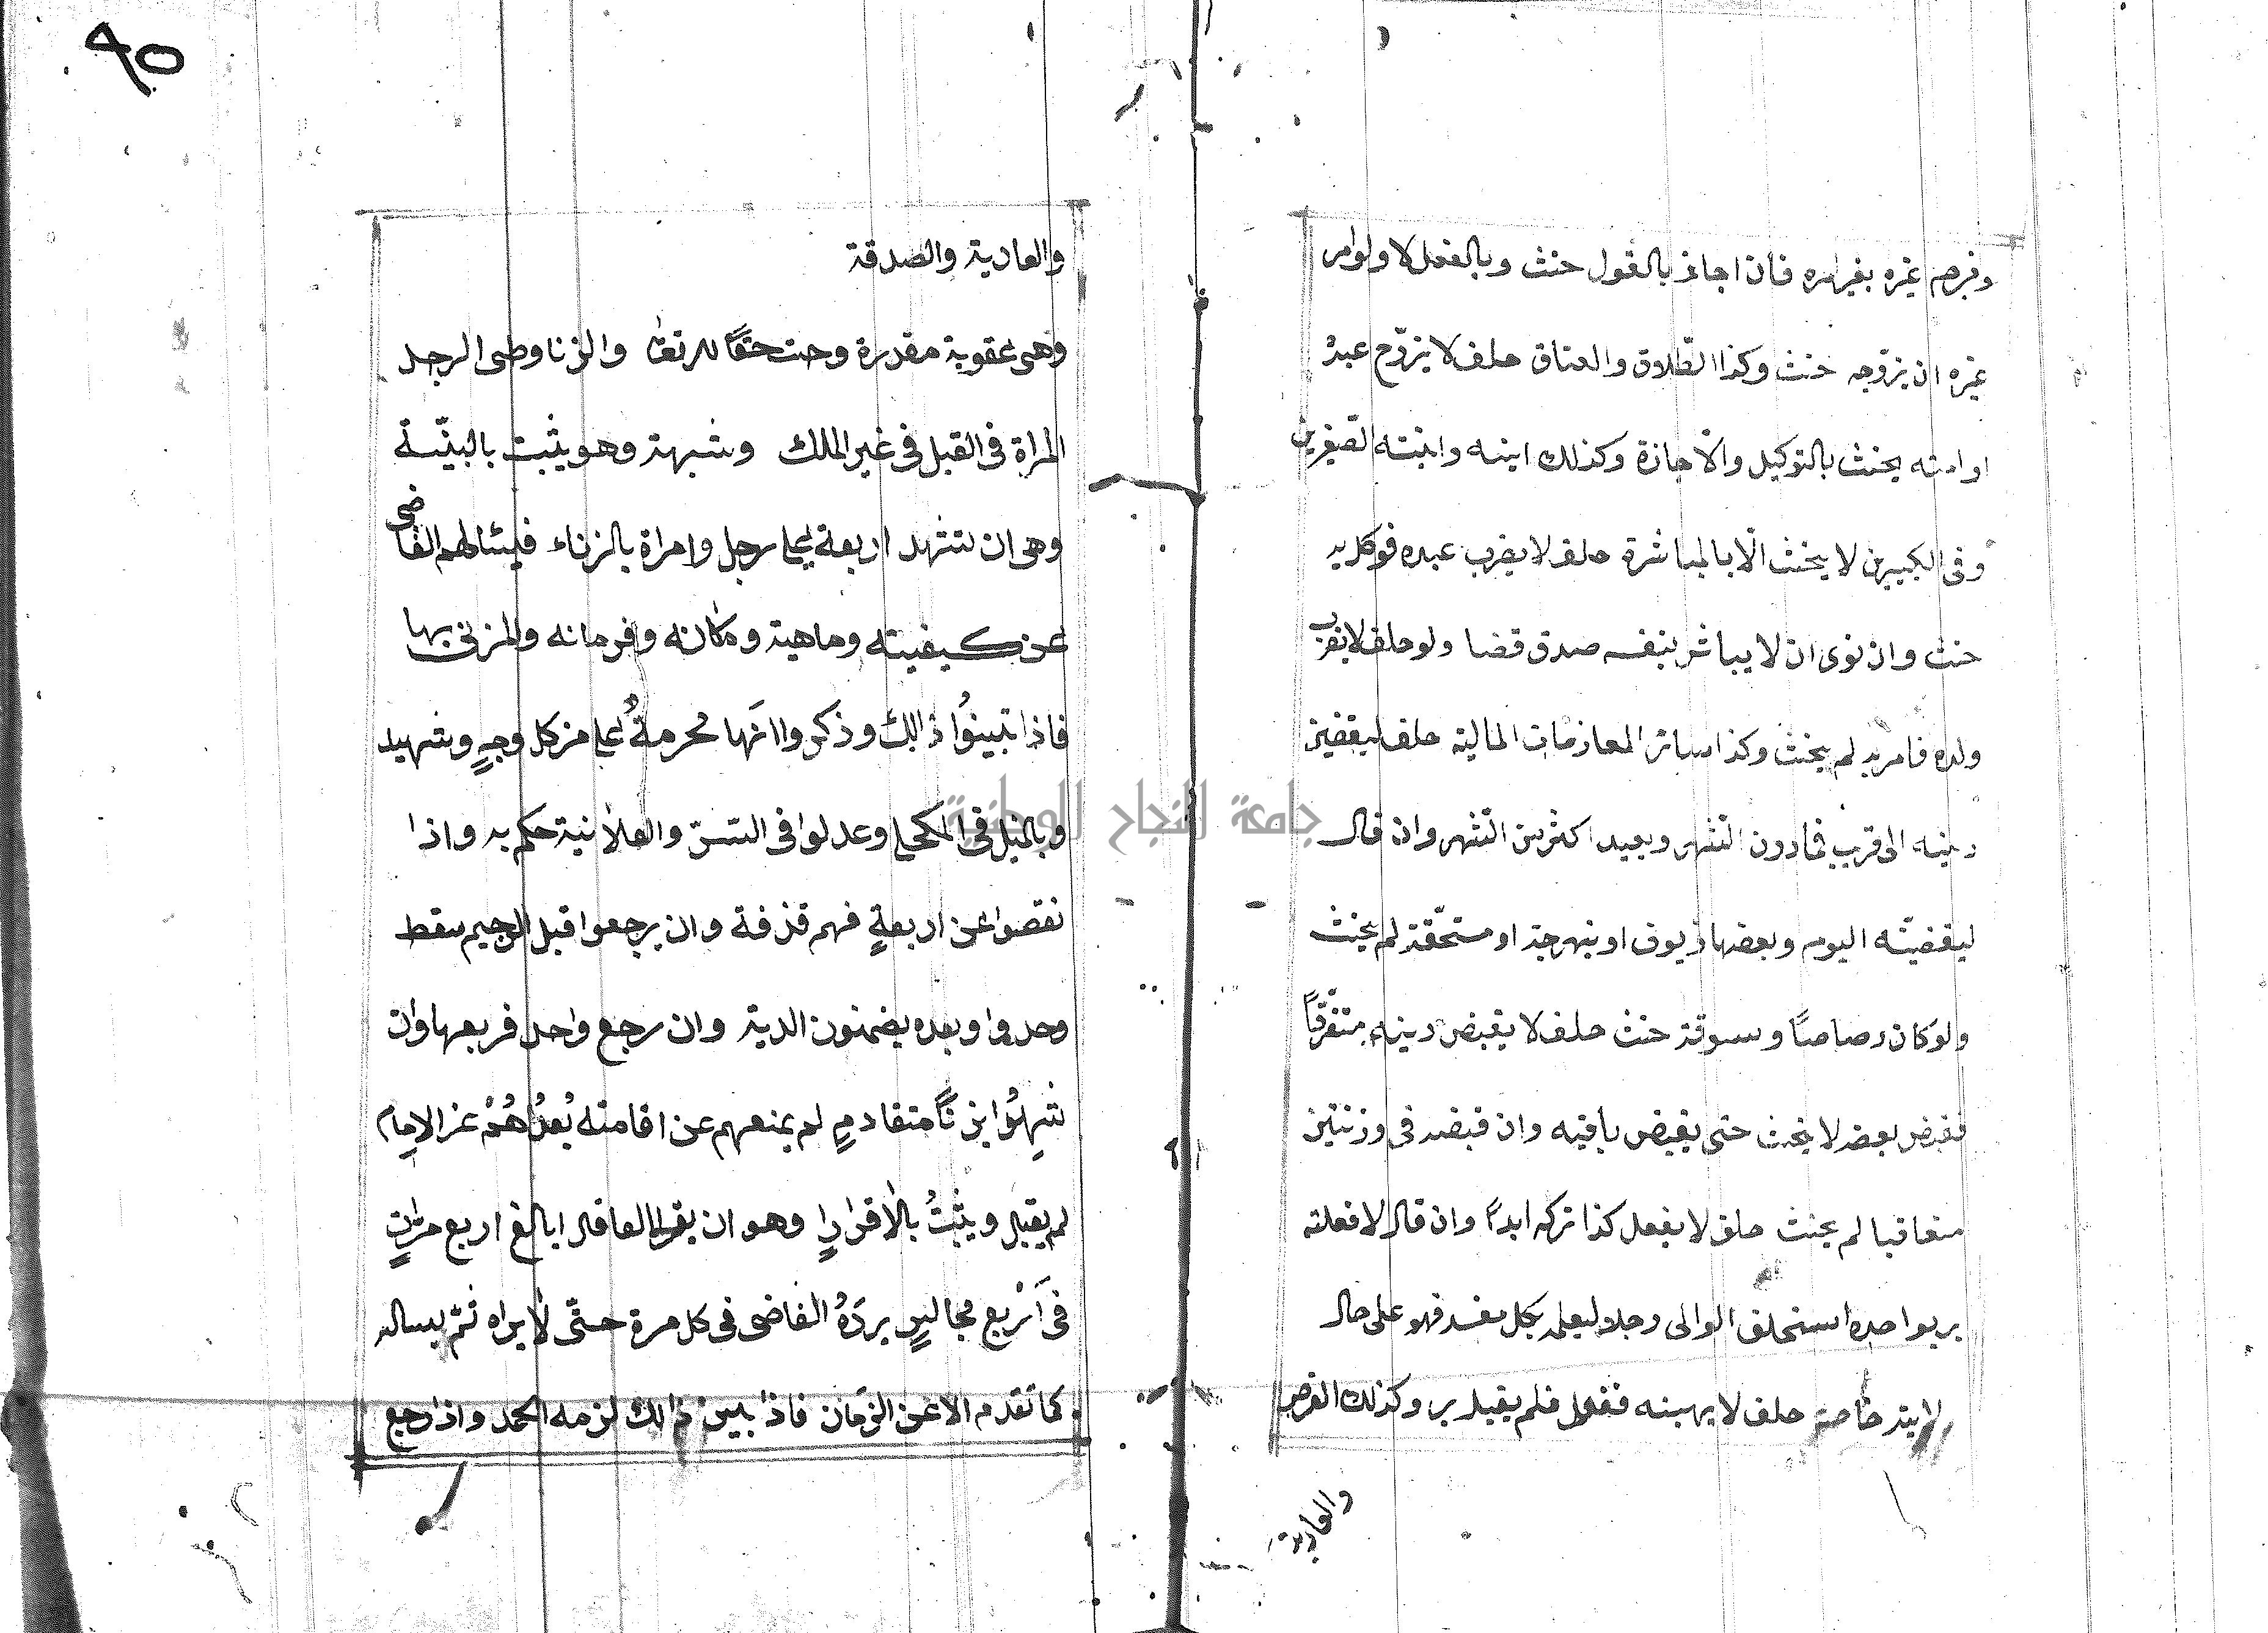 وزوجه غيره بغير امره فان اجاز بالقول حنث وبالفعل لا ولو امر
غيره ان يزوجه حنث وكذا الطّلاق والعتاق حلف لا يزوّج عبدْ
او امته يحنث بالتوكيل والاجازة وكذلك ابنه وابنته الصّغيرين
وفى الكبيرين لا يحنث الّا بالمباشرة حلف لا يضرب عبده فوكل به
حنث وان نوى ان لا يباشر بنفسه صدق قضا ولو حلف لا يضرب
ولده فامر به لم يحنث وكذا سائر المعاوضات المالية حلف ليقضين
دينه الى قريب فمادون الشّهر وبعيد اكثر من الشّهر وان قال
ليقضيّنه اليوم وبعضها زيوف او بنهرجة او مستحّقة لم يحنث
ولو كان رصاصًا وستوقة حنث حلف لا يقبض دينه متفّرقاً
فقبض بعضه لا يحنث حتى يقبض باقيه وان قبضه فى وزنتين
متعاقبا لم يحنث حلف لا يفعل كذا تركه ابداً وان قال لافعلنه
بر بواحده استحلف الوالى رجلا ليعلمه بكل مفسد فهو على حال
لايته خاصة حلف لا يهبنه ففعل فلم يقبل بر وكذلك القرض
والعارية
٩٥
والعارية والصدقة
وهى عقوبة مقدرة وجبت حقاً لله تعا والزنا وطى الرجل
المراة فى القبل فى غير الملك وشبهة وهو يثبت بالبيّنة
وهى ان تشهد اربعة على رجل وامراة بالزناء فيسئالهم القاضى
عن كيفيته وماهية ومكانه وزمانه والمزنى بها
فاذا تبينوُا ذالك وذكروا انّها محرمةُ على من كل وجهٍ وشهيد
وبالميل فى المكحلة وعدلوا فى السّرّ والعلانية حكم به واذا
نقصوا عن اربعةٍ فهم قذفة وان يرجعوا قبل الرجيم سقط
وحدوا وبعده يضمنون الدية وان رجع واحد فربعها وان
شهِدُوا بزناً متقادمٍ لم يمنعهم عن اقامته بُعدُهُمْ عن الامام
لم يقبل ويثبتُ بالاقرارِ وهو ان يقر العاقل البالغ اربع مراتٍ
فى اَرْبع مجالسٍ يردّهُ القاضى فى كل مرة حتّى لا يراه ثمّ يساله
كما تقدم الا عن الزمان فاذا بين ذالك لزمه الحد واذا رجع
جامعة النجاح الوطنية